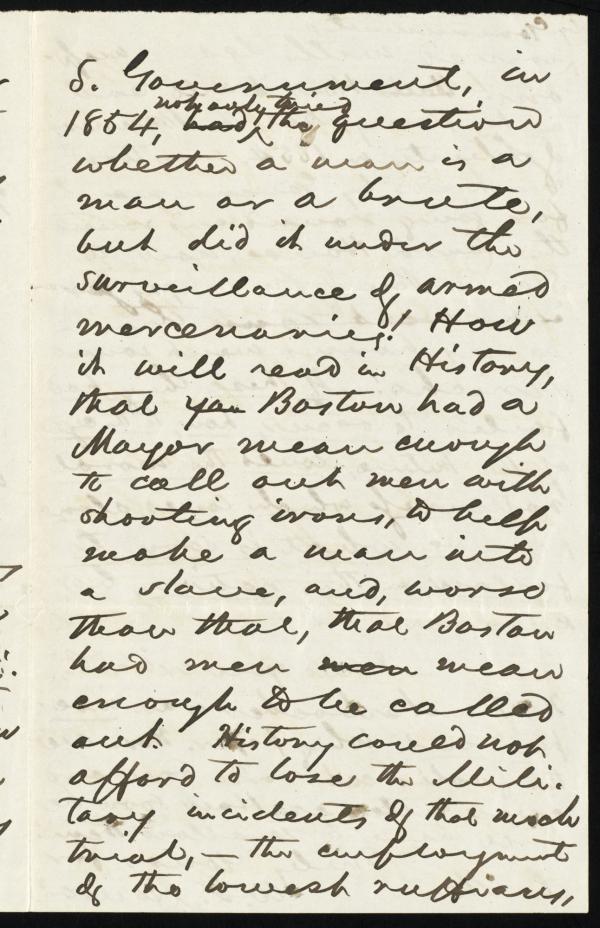 S. Government, in
not only tried
1854, had the question
whether a man is a
man or a brute,
but did it under the
surveillance of armed
mercenaries! How
it will read in History,
that you Boston had a
Mayor mean enough
to call out men with
shooting irons, to help
make a man into
a slave, and, worse
than that, that Boston
had men men mean
enough to be called
out. History could not
afford to lose the Mili-
tary incidents of that mock
trial, — the employment
of the lowest ruffians,